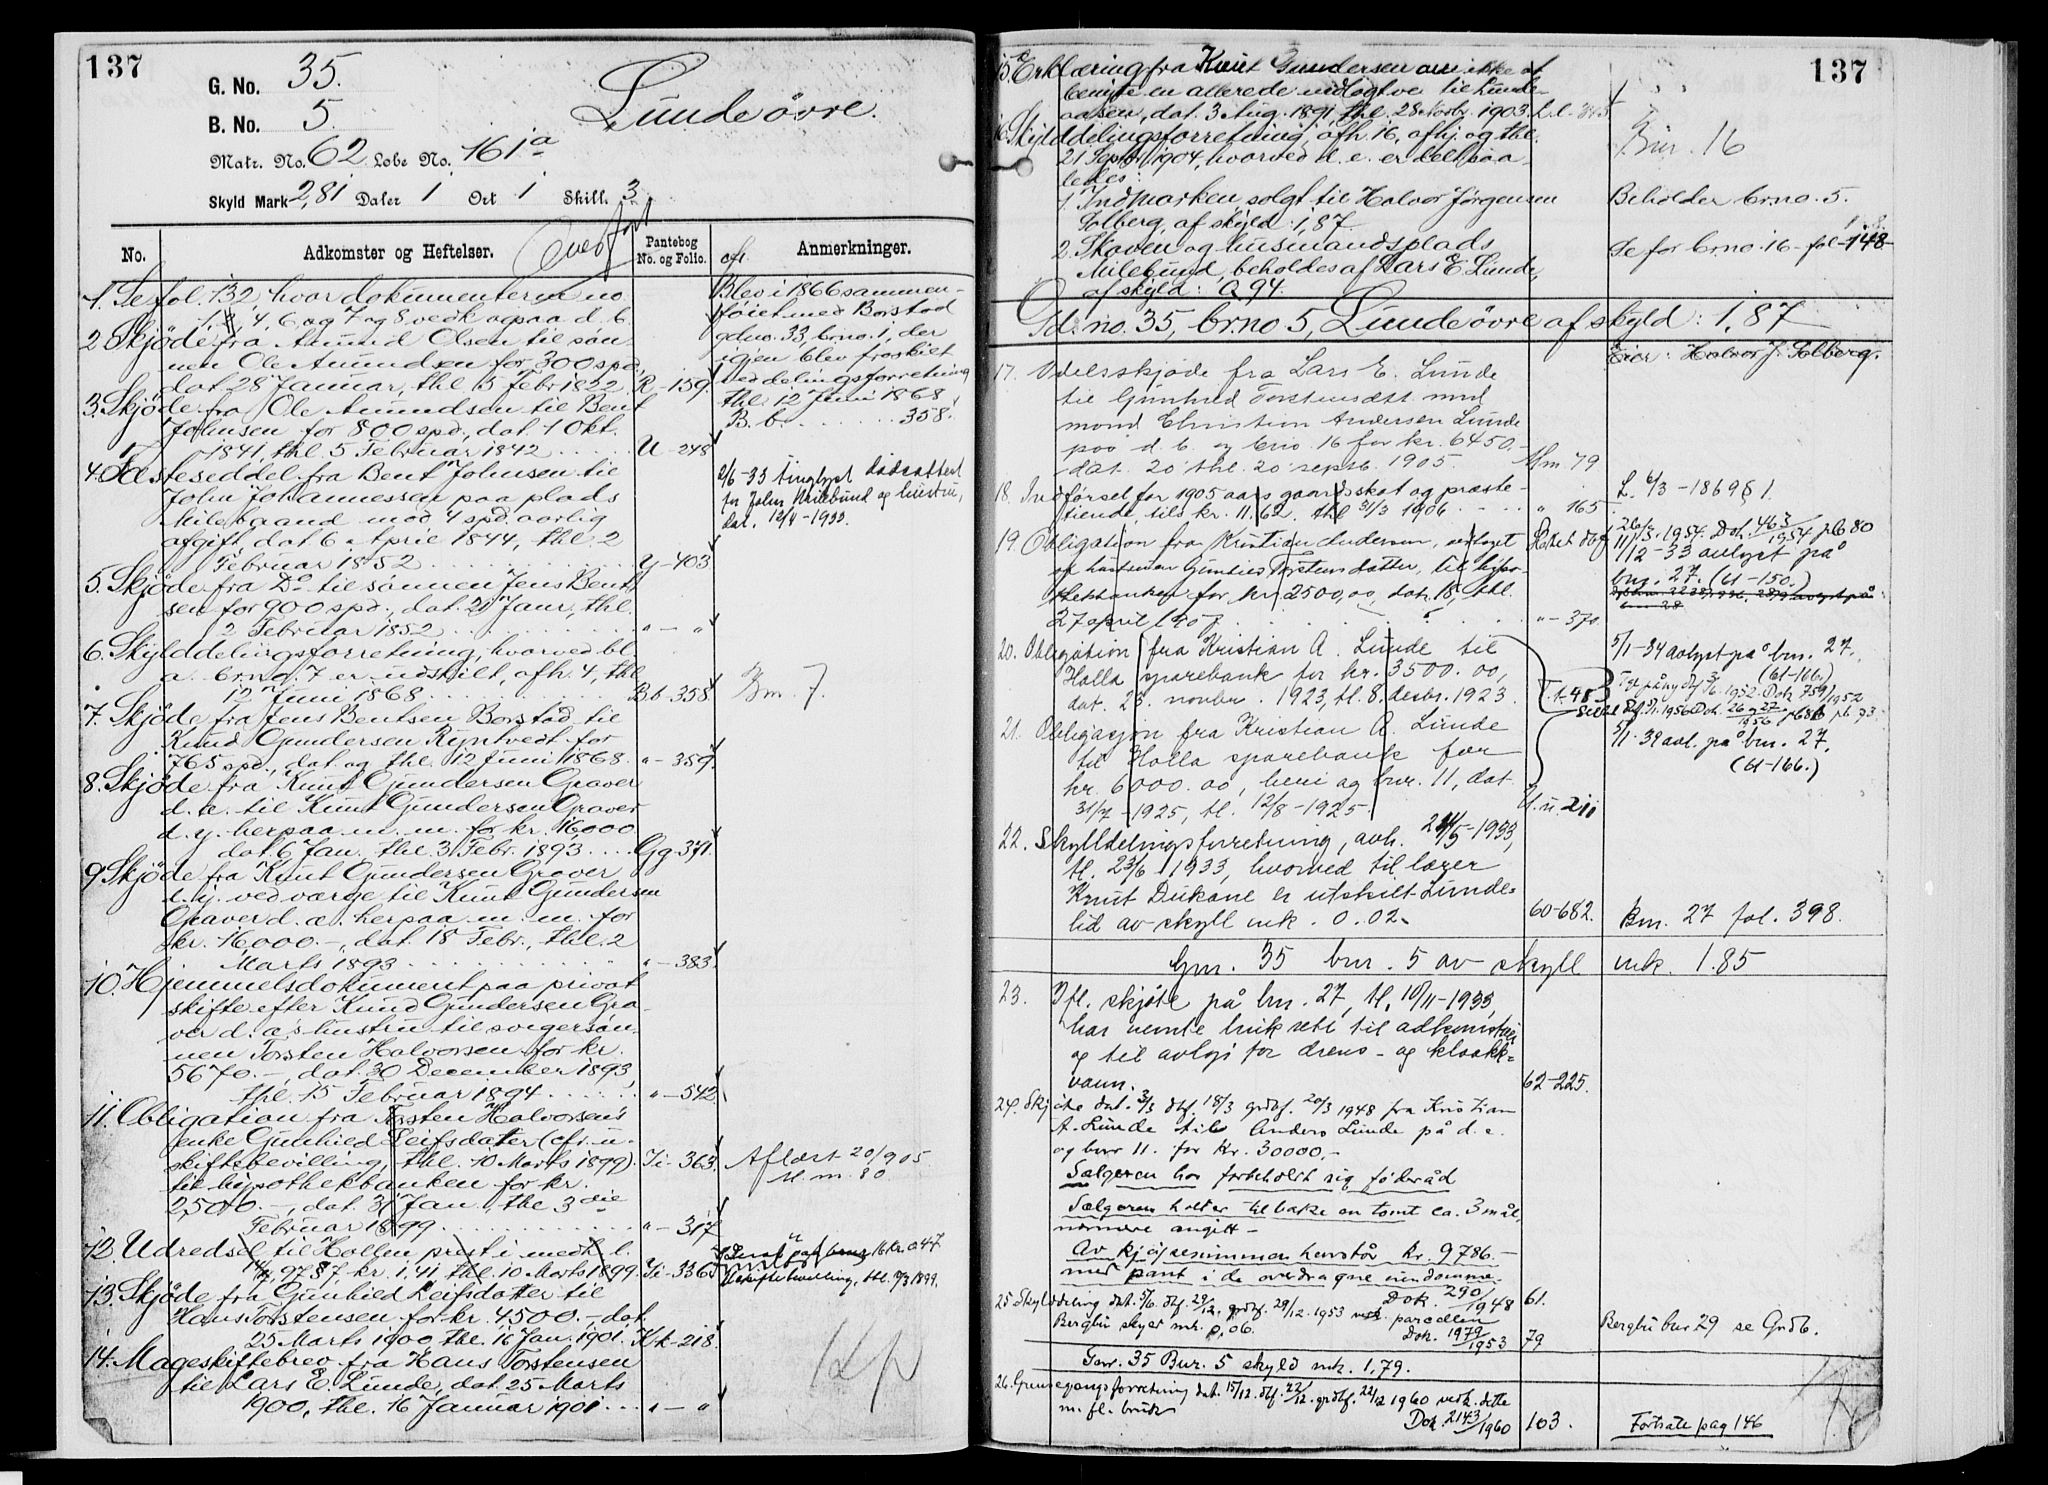 137
G. No. 35.
B. No. 5.
Matr. No. 62 Løbe No. 161a
Skyld Mark 2,81 Daler 1 Ort 1 Skill. 3
Lunde övre.
Overfört
No. Adkomster og Heftelser. Pantebog No. og Folio. Anmerkninger.
1. Se fol. 132 hvor dokumenterne no.
4, 6 og 7 og 8 vedk. ogsaa d. b.
2 Skjöde fra Amund Olsen til søn-
nen Ole Amundsen for 300 spd.,
dat. 28 Januar, thl. 15 Febr 1822 R-159.
3. Skjöde fra Ole Amundsen til Bent
Johnsen for 800 spd., dat. 1 Okt.
1841, thl. 5 Februar 1842 U-248
4. Fæsteseddel fra Bent Johnsen til
John Johannessen paa plads
Milebaand mod 4 spd. aarlig
afgift, dat. 6 April 1844, thl. 2
Februar 1852 Y-403
5. Skjöde fra Do til sönnen Jens Bent-
sen for 900 spd., dat. 21 Janr., thl.
2 Februar 1852 " - "
6. Skylddelingsforretning, hvorved bl.
a. brno. 7 er udskilt, afh. 4, thl.
12 Juni 1868 B.b-358
7. Skjöde fra Jens Bentsen Borstad til
Knud Gundersen Rynhvedt for
765 spd., dat. og thl. 12 Juni 1868. "-359
8. Skjöde fra Knut Gundersen Graver
d. æ. til Knut Gundersen Graver
d. y. herpaa m. m. for kr. 16,000
dat. 6 Jan. thl. 3 Febr. 1893 Gg-371.
9 Skjöde fra Knut Gundersen Graver
d. y. ved værge til Knut Gundersen
Graver d. æ. herpaa m. m. for
kr. 16,000.-, dat. 18 Febr., thl. 2
Marts 1893 "-383.
10. Hjemmelsdokument paa privat
skifte efter Knud Gundersen Gra-
ver d. æ's hustru til svigersøn-
nen Torsten Halvorsen for kr.
5670.-, dat. 30 December 1893,
thl. 15 Februar 1894 "-542
11. Obligation fra Torsten Halvorsens
enke Gunhild Leifsdatter (cfr. u-
skiftebevilling, thl. 10 Marts 1899) Ii-363
til hypothekbanken for kr.
2,500.-, dat. 31 Jan., thl. 3die
Februar 1899 "-317
12. Udredsel til Hollen prest i medh. l.
14/7 97 § 7, kr. 1.41 thl. 10 Marts 1899. Ii-336
13. Skjöde fra Gunhild Leifsdatter til
Hans Torstensen for kr. 4500.-, dat.
25 Marts 1900, thl. 16 Jan. 1901. Kk-218.
14. Mageskiftebrev fra Hans Torstensen
til Lars E. Lunde, dat. 25 Marts
1900, thl. 16 Januar 1901 " - "
Blev i 1866 sammen-
føiet med Borstad
gdno. 33, brno. 1, der
igjen blev fraskilt
ved delingsforretning
thl. 12 Juni 1868
B.b. 358.
2/6-33 tinglyst dødsattest
for John Milebund og hustru,
dat. 12/4-1933.
Bm. 7.
Aflæst 20/9 05
M.m. 80
uskiftebevilling, thl. 10/3 1899.
137
15. Erklæring fra Knut Gundersen om ikke at
benytte en allerede udlagt vei til Lunde-
aasen, dat. 3 Aug. 1891, thl. 28 Novbr. 1903. L.l-
16. Skylddelingsforretning, afh. 16, afhj. og thl.
21 Septbr. 1904, hvorved d. e. er delt saa-
ledes:
1. Indmarken, solgt til Halvor Jørgensen
Solberg, af skyld: 1,87
2. Skoven og husmandsplads
Milebund, beholdes af Lars E. Lunde,
af skyld: 0,94.
Bnr. 16
Beholder brno. 5.
Se for brno. 16 - fol - 148
Gd. no. 35, br. no 5, Lunde övre af skyld: 1,87
Eier: Halvor J. Solberg.
17. Odelsskjøde fra Lars E. Lunde
til Gunhild Torstensdatt. med
mand Christian Andersen Lunde
paa d. b. og brno. 16 for kr. 6450,-
dat. 20 thl. 20 septb. 1905. Mm. 79
18. Indførsel for 1905 aars gaardsskat og præste-
tiende, tils kr. 11.62. thl 31/3 1906 " 165
L. 4/3-1869 § 1.
19. Obligation fra Kristian Andersen, vedtaget
af hustruen Gunhild Torstensdatter, til hypo-
thekbanken for kr. 2500,00, dat. 18, thl.
27 april 1907 "-370
Slettet dbf 26/3.1954. Dok. 463/1954 pb 80
11/12-33 avlyst på
bnr. 27. (61-150.)
20. Obligation fra Kristian A. Lunde til
Holla sparebank for kr. 3500.00,
dat. 23. novbr. 1923, tl. 8. desbr. 1923. T.t. 48
5/1-34 avlyst på bnr. 27.
(61-166.)
21. Obligasjon fra Kristian A. Lunde
til Holla sparebank for
kr. 6000.00, heri og bnr. 11, dat.
31/7-1925, tl. 12/8-1925. U.u. 211
5/1-34 avl. på bnr. 27,
(61-166.)
22. Skylddelingsforretning, avh. 24/5-1933,
tl. 23/6 1933, hvorved til lærer
Knut Dukane er utskilt Lunde-
lid av skyll mk. 0.02. 60-682.
Bnr. 27 fol. 398.
Gnr. 35 bnr. 5 av skyll mk. 1.85
23. Ifl. skjøte på bnr. 27, tl. 10/11-1933,
har nevnte bruk rett til adkomstvei
og til avløp for drens- og kloakk-
vann. 62-225.
24. Skjøte dat. 3/3 dbf. 18/3 grdbf. 20/3 1948 fra Kristian
A. Lunde til Anders Lunde på d. e.
og bnr 11. for kr. 30000.-
Selgeren har forbeholdt sig føderåd
Selgeren holder tilbake en tomt ca. 3 mål,
nærmere angitt-
Av kjøpesummen henstår kr. 9786.-
med pant i de overdragne eiendomme.
Dok. 290/1948 61.
25 Skylddeling dat. 5/6. dbf. 29/12. grdbf. 29/12. 1953 parcellen
Bergtu skyld mk. 0.06.
Dok. 1979/1953 79
Bergtu bnr 29 se Grdb.
Gnr. 35 Bnr. 5 skyld mk. 1,79.
26. Grensegangsforretning dat. 15/12. dbf. 22/12. grdbf. 22/12 1960 vedk. dette
m. fl. bruk
Dok. 2143/1960 103.
Fortsatt pag 146